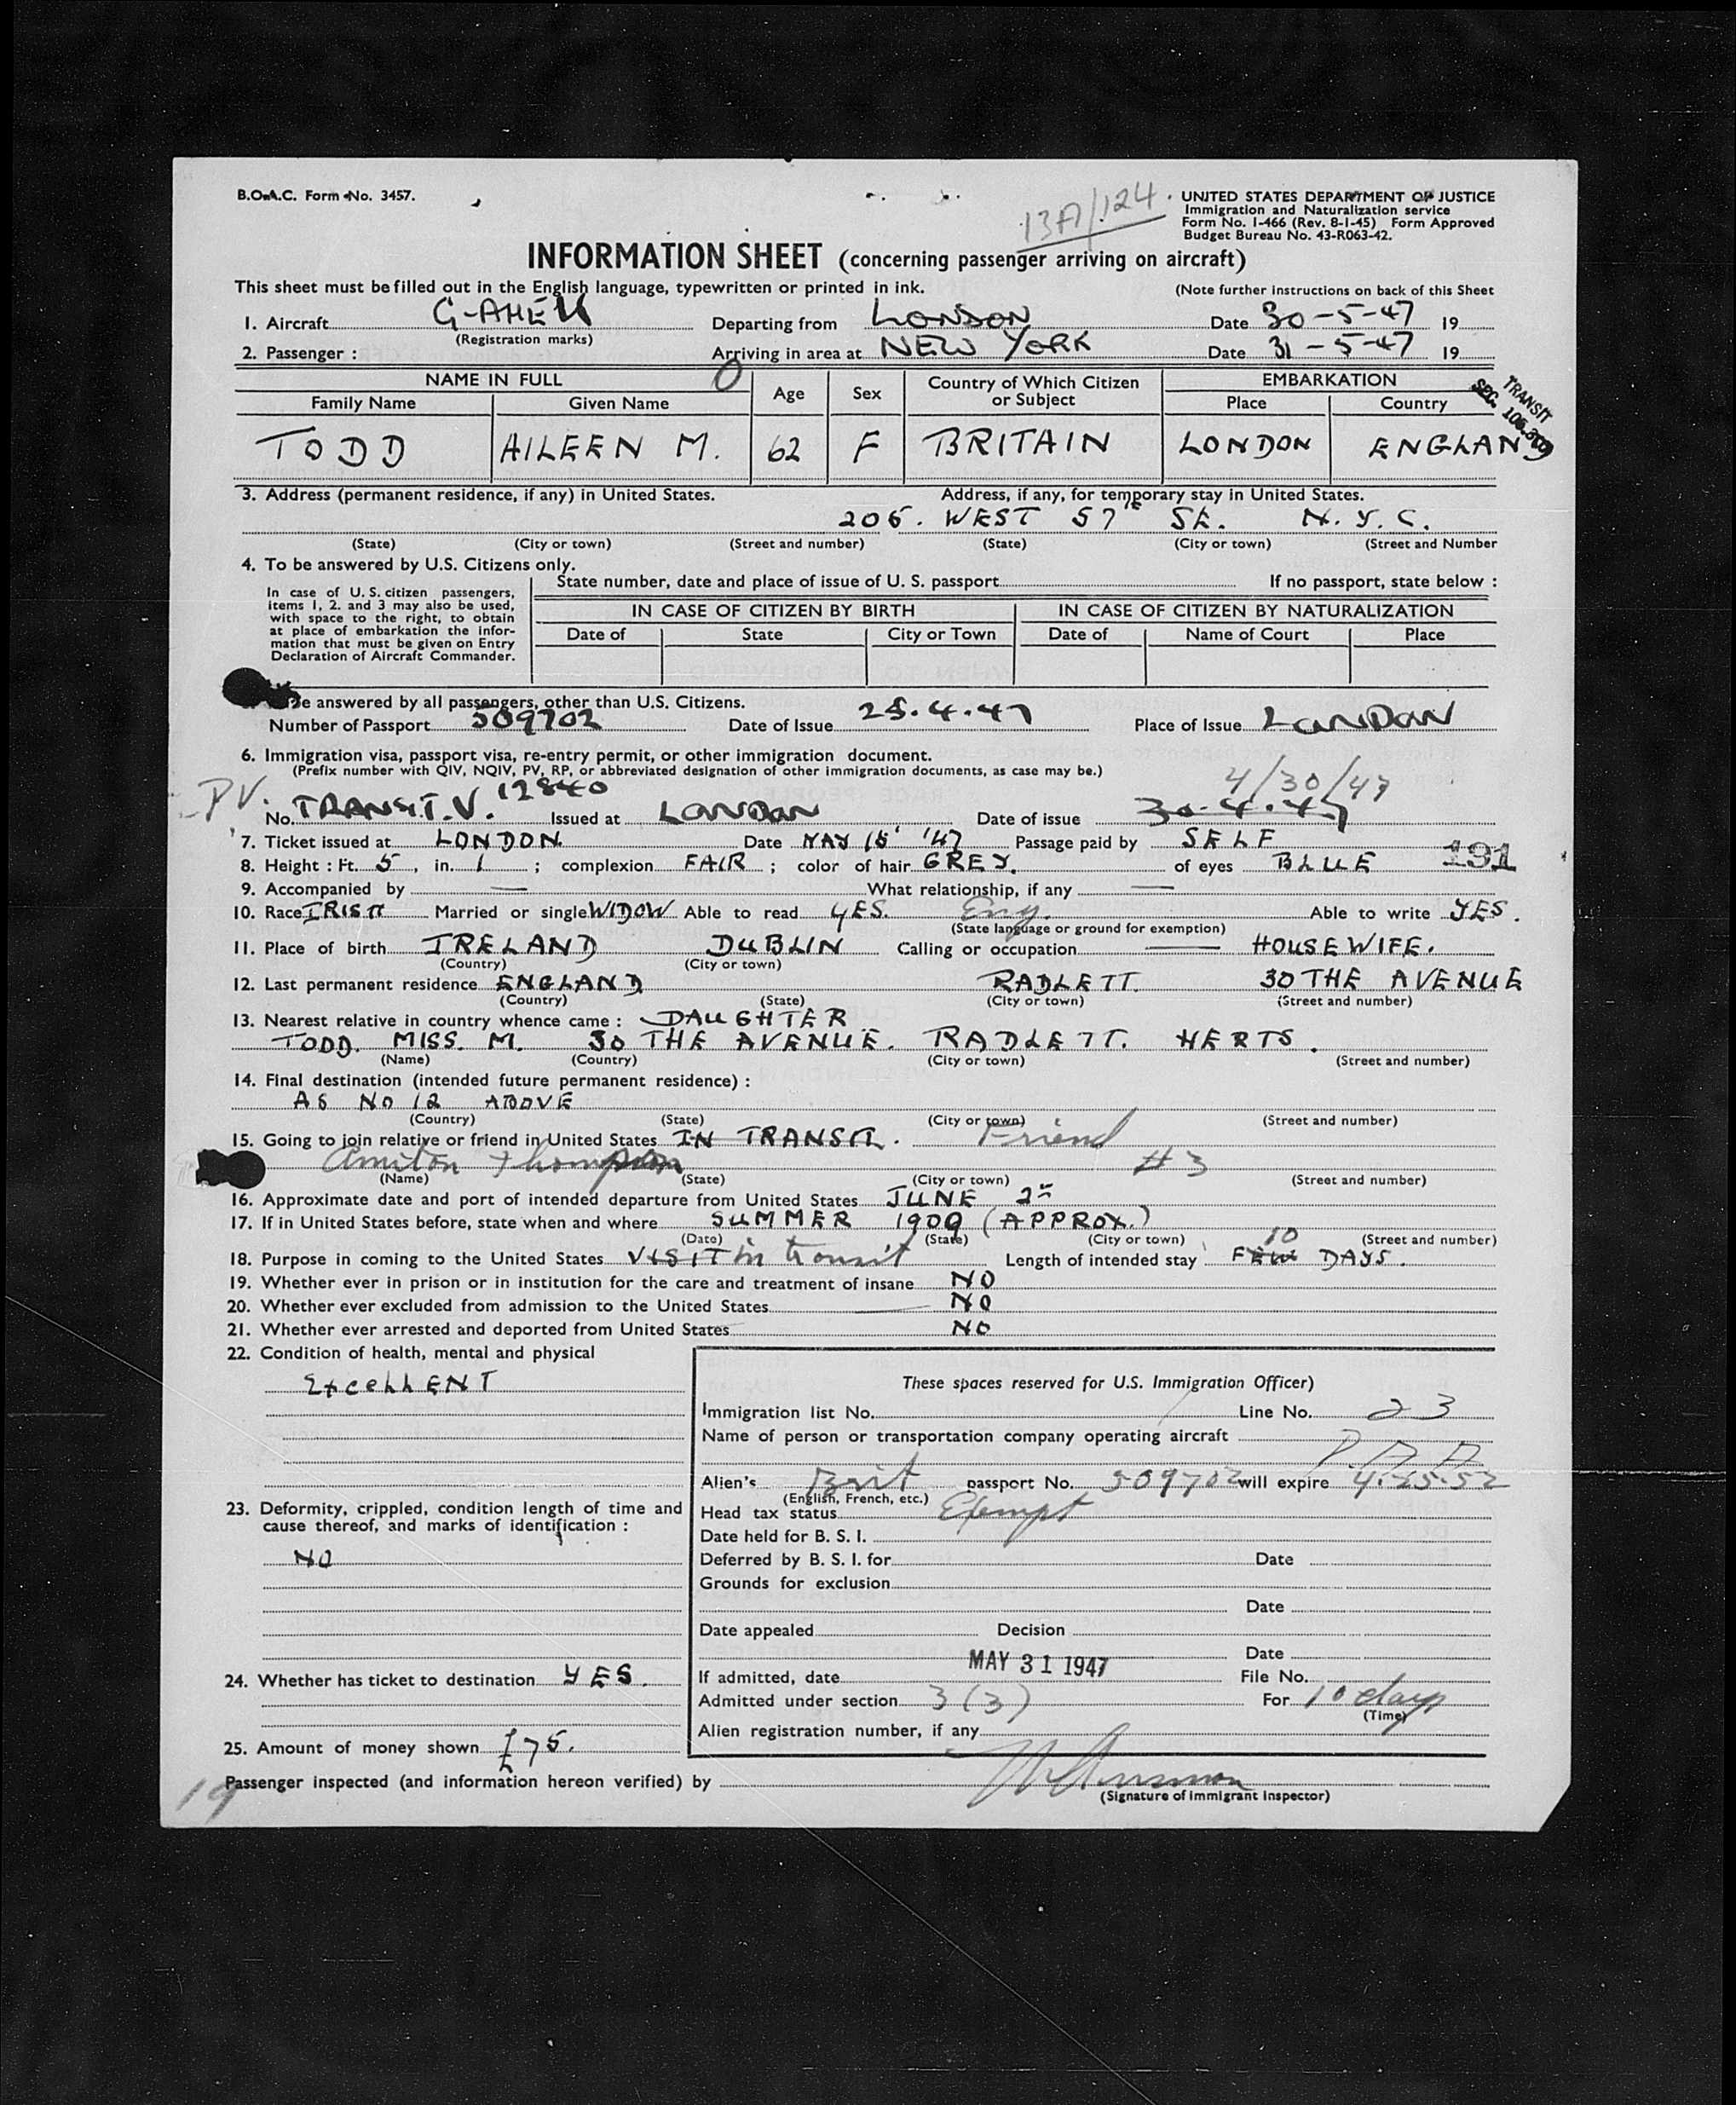 B.O.A.C. Form No. 3457.
13A/124
UNITED STATES DEPARTMENT OF JUSTICE
Immigration and Naturalization service
Form No. I-466 (Rev. 8-1-45) Form Approved
Budget Bureau No. 43-R063-42.
INFORMATION SHEET (concerning passenger arriving on aircraft)
This sheet must be filled out in the English language, typewritten or printed in ink. (Note further instructions on back of this Sheet
1. Aircraft G-AHEN Departing from LONDON Date 30-5-47 19
(Registration marks)
2. Passenger : Arriving in area at NEW YORK Date 31-5-47 19
NAME IN FULL O Age Sex Country of Which Citizen or Subject EMBARKATION
Family Name Given Name Place Country
TRANSIT
SEC.
TODD AILEEN M. 62 F BRITAIN LONDON ENGLAND
3. Address (permanent residence, if any) in United States. Address, if any, for temporary stay in United States.
205. WEST 57TH St. N.Y.C.
(State) (City or town) (Street and number) (State) (City or town) (Street and Number
4. To be answered by U.S. Citizens only.
State number, date and place of issue of U. S. passport If no passport, state below :
In case of U. S. citizen passengers,
items 1, 2. and 3 may also be used,
with space to the right, to obtain
at place of embarkation the infor-
mation that must be given on Entry
Declaration of Aircraft Commander.
IN CASE OF CITIZEN BY BIRTH IN CASE OF CITIZEN BY NATURALIZATION
Date of State City or Town Date of Name of Court Place
be answered by all passengers, other than U.S. Citizens.
Number of Passport 509702 Date of Issue 25.4.47 Place of Issue LONDON
6. Immigration visa, passport visa, re-entry permit, or other immigration document.
(Prefix number with QIV, NQIV, PV, RP, or abbreviated designation of other immigration documents, as case may be.)
4/30/47
PV. No. TRANSIT.V. 12840 Issued at LONDON Date of issue 30.4.47
7. Ticket issued at LONDON. Date MAY 15 '47 Passage paid by SELF
8. Height : Ft. 5, in. 1 ; complexion FAIR ; color of hair GREY. of eyes BLUE 191
9. Accompanied by — What relationship, if any —
10. Race IRISH Married or single WIDOW Able to read YES. Eng. Able to write YES.
(State language or ground for exemption)
11. Place of birth IRELAND DUBLIN Calling or occupation — HOUSEWIFE.
(Country) (City or town)
12. Last permanent residence ENGLAND RADLETT. 30 THE AVENUE
(Country) (State) (City or town) (Street and number)
13. Nearest relative in country whence came : DAUGHTER
TODD. MISS. M. 30 THE AVENUE. RADLETT. HERTS.
(Name) (Country) (City or town) (Street and number)
14. Final destination (intended future permanent residence) :
AS NO 12 ABOVE
(Country) (State) (City or town) (Street and number)
15. Going to join relative or friend in United States IN TRANSIT. Friend
Thompson #3
(Name) (State) (City or town) (Street and number)
16. Approximate date and port of intended departure from United States JUNE
17. If in United States before, state when and where SUMMER 1909 (APPROX.)
(Date) (State) (City or town) (Street and number)
18. Purpose in coming to the United States VISIT in transit Length of intended stay FEW 10 DAYS.
19. Whether ever in prison or in institution for the care and treatment of insane NO
20. Whether ever excluded from admission to the United States NO
21. Whether ever arrested and deported from United States NO
22. Condition of health, mental and physical
EXCELLENT
These spaces reserved for U.S. Immigration Officer)
Immigration list No. Line No. 23
Name of person or transportation company operating aircraft
P.A.A
Alien's Brit passport No. 509702 will expire 4-25-52
(English, French, etc.)
23. Deformity, crippled, condition length of time and
cause thereof, and marks of identification :
NO
Head tax status Exempt
Date held for B. S. I.
Deferred by B. S. I. for Date
Grounds for exclusion
Date
Date appealed Decision
Date
24. Whether has ticket to destination YES.
If admitted, date MAY 31 1947 File No.
Admitted under section 3(3) For 10 days
(Time)
Alien registration number, if any
25. Amount of money shown £75.
19
Passenger inspected (and information hereon verified) by
(Signature of Immigrant Inspector)